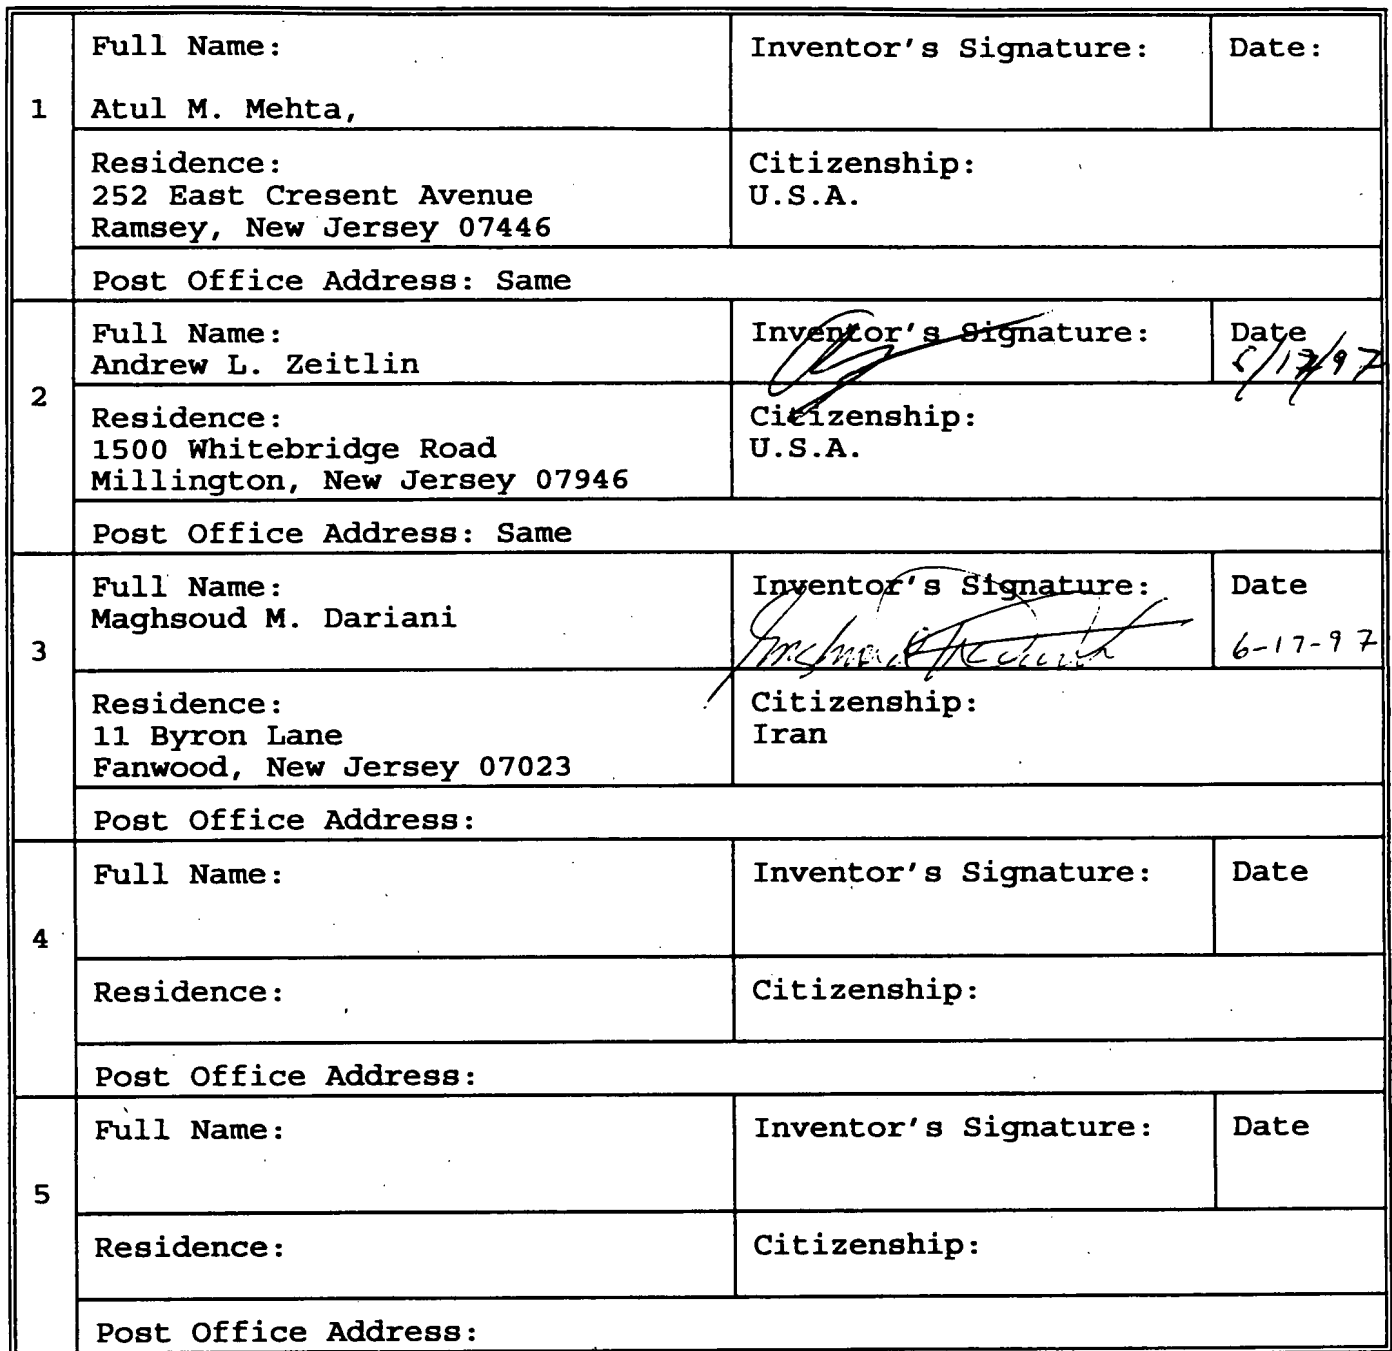 1
Full Name:
Inventor's Signature:
Date:
Atul M. Mehta,
Residence:
252 East Cresent Avenue
Ramsey, New Jersey 07446
Citizenship:
U.S.A.
Post Office Address: Same
2
Full Name:
Andrew L. Zeitlin
Inventor's Signature:
Date
Residence:
1500 Whitebridge Road
Millington, New Jersey 07946
Citizenship:
U.S.A.
Post Office Address: Same
3
Full Name:
Maghsoud M. Dariani
Inventor's Signature:
Date
6-17-97
Residence:
11 Byron Lane
Fanwood, New Jersey 07023
Citizenship:
Iran
Post Office Address:
4
Full Name:
Inventor's Signature:
Date
Residence:
Citizenship:
Post Office Address:
5
Full Name:
Inventor's Signature:
Date
Residence:
Citizenship:
Post Office Address: